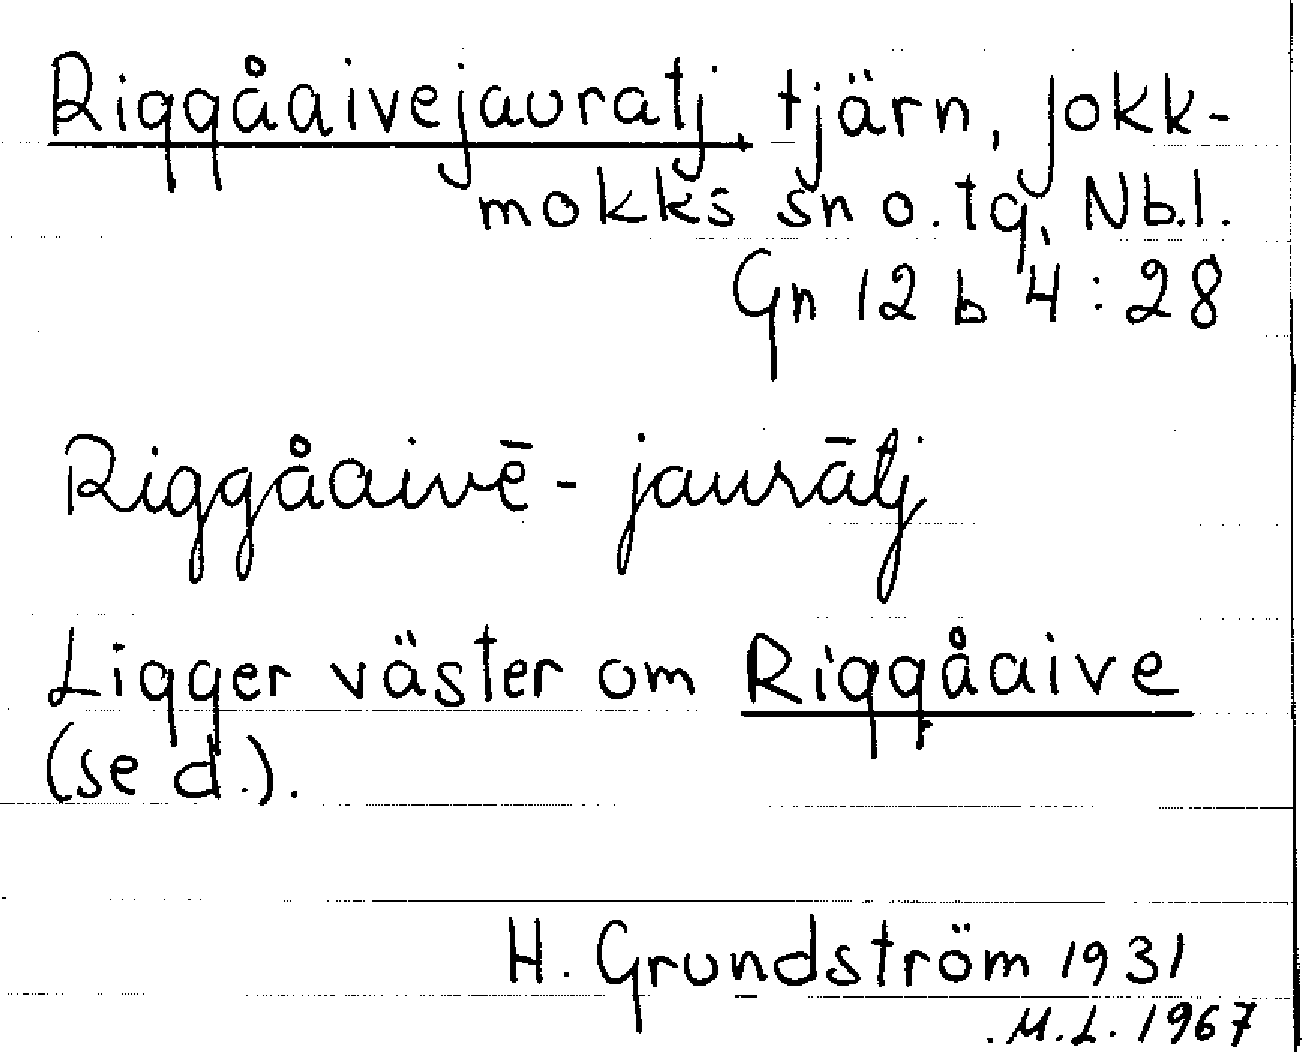 Riggåaivejauratj tjärn, Jokk-
mokks sn o. tg, Nb.l.
Gn 12 b 4:28
Riggåaivē-jaurātj
Ligger väster om Riggåaive
(se d.).
H. Grundström 1931
M.L. 1967